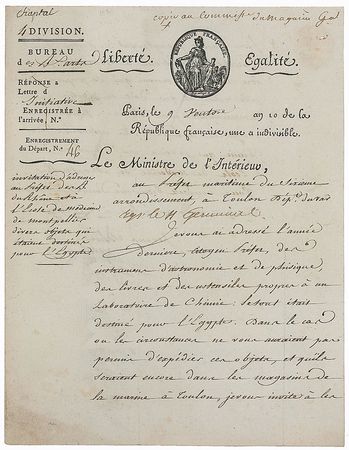 Chaptal
copie au Commiss^re du Magasin Gal
4 DIVISION.
BUREAU
des Arts
Liberté.
RÉPUBLIQUE FRANÇAISE
Egalité.
RÉPONSE à
Lettre d
Initiative
ENREGISTRÉE à
l'arrivée, N.°
Paris, le 9 Ventose an 10 de la
République française, une & indivisible.
ENREGISTREMENT
du Départ, N.° 146
Le Ministre de l'Intérieur,
invitation d'adresser
au Préfet
et à
l'Ecole de médecine
de Montpellier
divers objets qui
étaient destinés
pour l'Egypte
au Préfet maritime du Sixieme
arrondissement, à Toulon Dép.t du var
le 14 Germinal
Je vous ai adressé l'année
derniere, citoyen Préfet, des
instrumens d'astronomie et de phisique,
des livres et des ustensiles propres à un
Laboratoire de Chimie: le tout était
destiné pour l'Egypte. Dans le cas
ou les circonstances ne vous auraient pas
permis d'expédier ces objets, et qu'ils
seraient encore dans les magasins de
la marine à Toulon, je vous invite à les